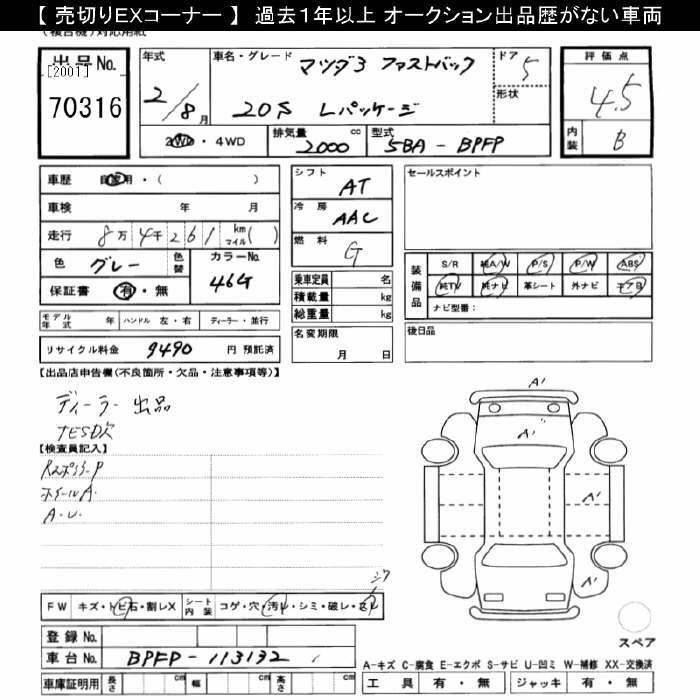 【 売切りEXコーナー 】 過去1年以上 オークション出品歴がない車両
出品No.
[2001]
70316
年式
2/8月
車名・グレード
マツダ3 ファストバック
20S Lパッケージ
ドア
5
形状
評価点
4.5
内装
B
2WD・4WD
排気量
2000 cc
型式
5BA - BPFP
車歴 自家用・( )
車検 年 月
走行 8万4千261 km マイル( )
色 グレー 色替
カラーNo. 46G
保証書 有・無
モデル年式 年 ハンドル 左・右 ディーラー・並行
リサイクル料金 9490 円 預託済
シフト AT
冷房 AAC
燃料 G
乗車定員 名
積載量 kg
総重量 kg
名変期限
月 日
セールスポイント
装備品
S/R 純A/W P/S P/W ABS
純TV 純ナビ 革シート 外ナビ エアB
ナビ型番:
後日品
【出品店申告欄(不良箇所・欠品・注意事項等)】
ディーラー出品
【検査員記入】
ホイールA.
A.U.
A'
A'
A'
A'
FW キズ・トビ石・割レX シート内装 コゲ・穴・汚レ・シミ・破レ・スレ
登録 No.
車台 No. BPFP-113132
車庫証明用 長さ cm 幅 cm 高さ cm
スペア
A-キズ C-腐食 E-エクボ S-サビ U-凹ミ W-補修 XX-交換済
工具 有・無 ジャッキ 有・無